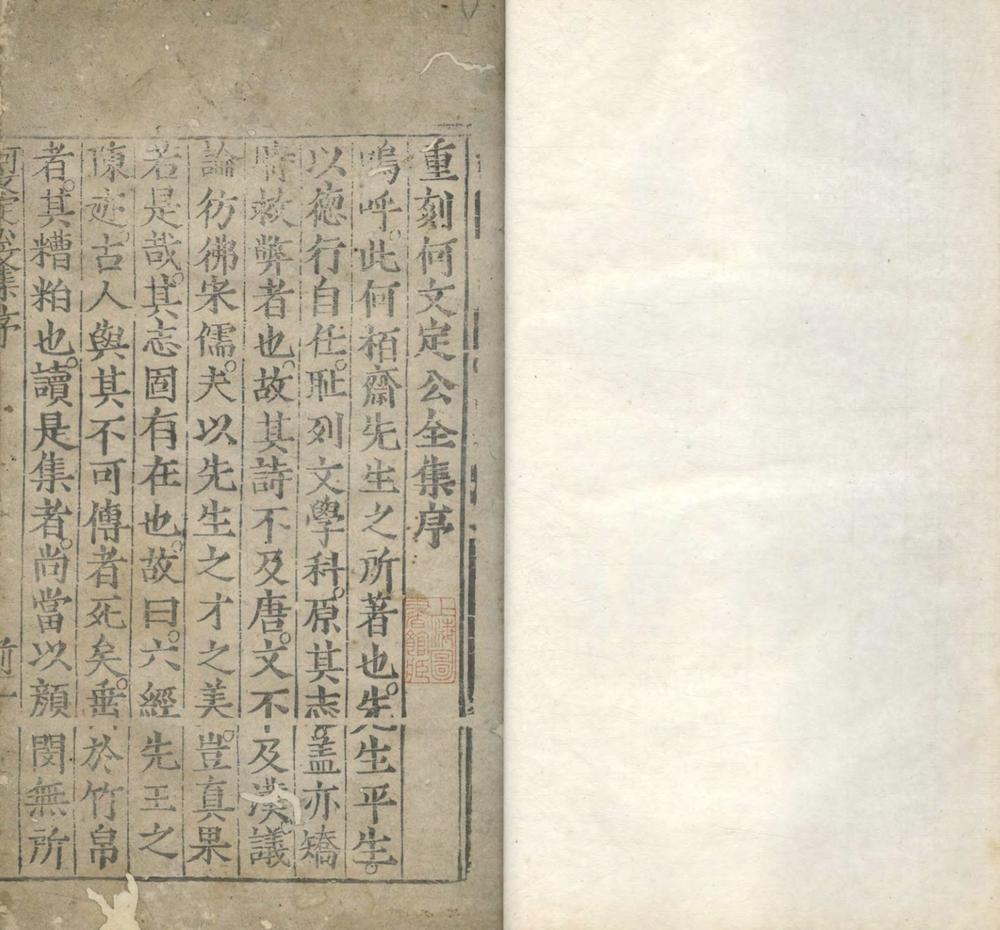 重刻何文定公全集序
嗚呼。此何栢齋先生之所著也。先生平生。
以德行自任。耻列文學科。原其志蓋亦矯
時救弊者也。故其詩不及唐。文不及漢。議
論彷彿宋儒。夫以先生之才之美。豈真果
若是哉。其志固有在也。故曰。六經先王之
陳迹。古人與其不可傳者死矣。垂於竹帛
者。其糟粕也。讀是集者。尚當以顏閔無所
何文定公文集序 前一
上海圖書館藏